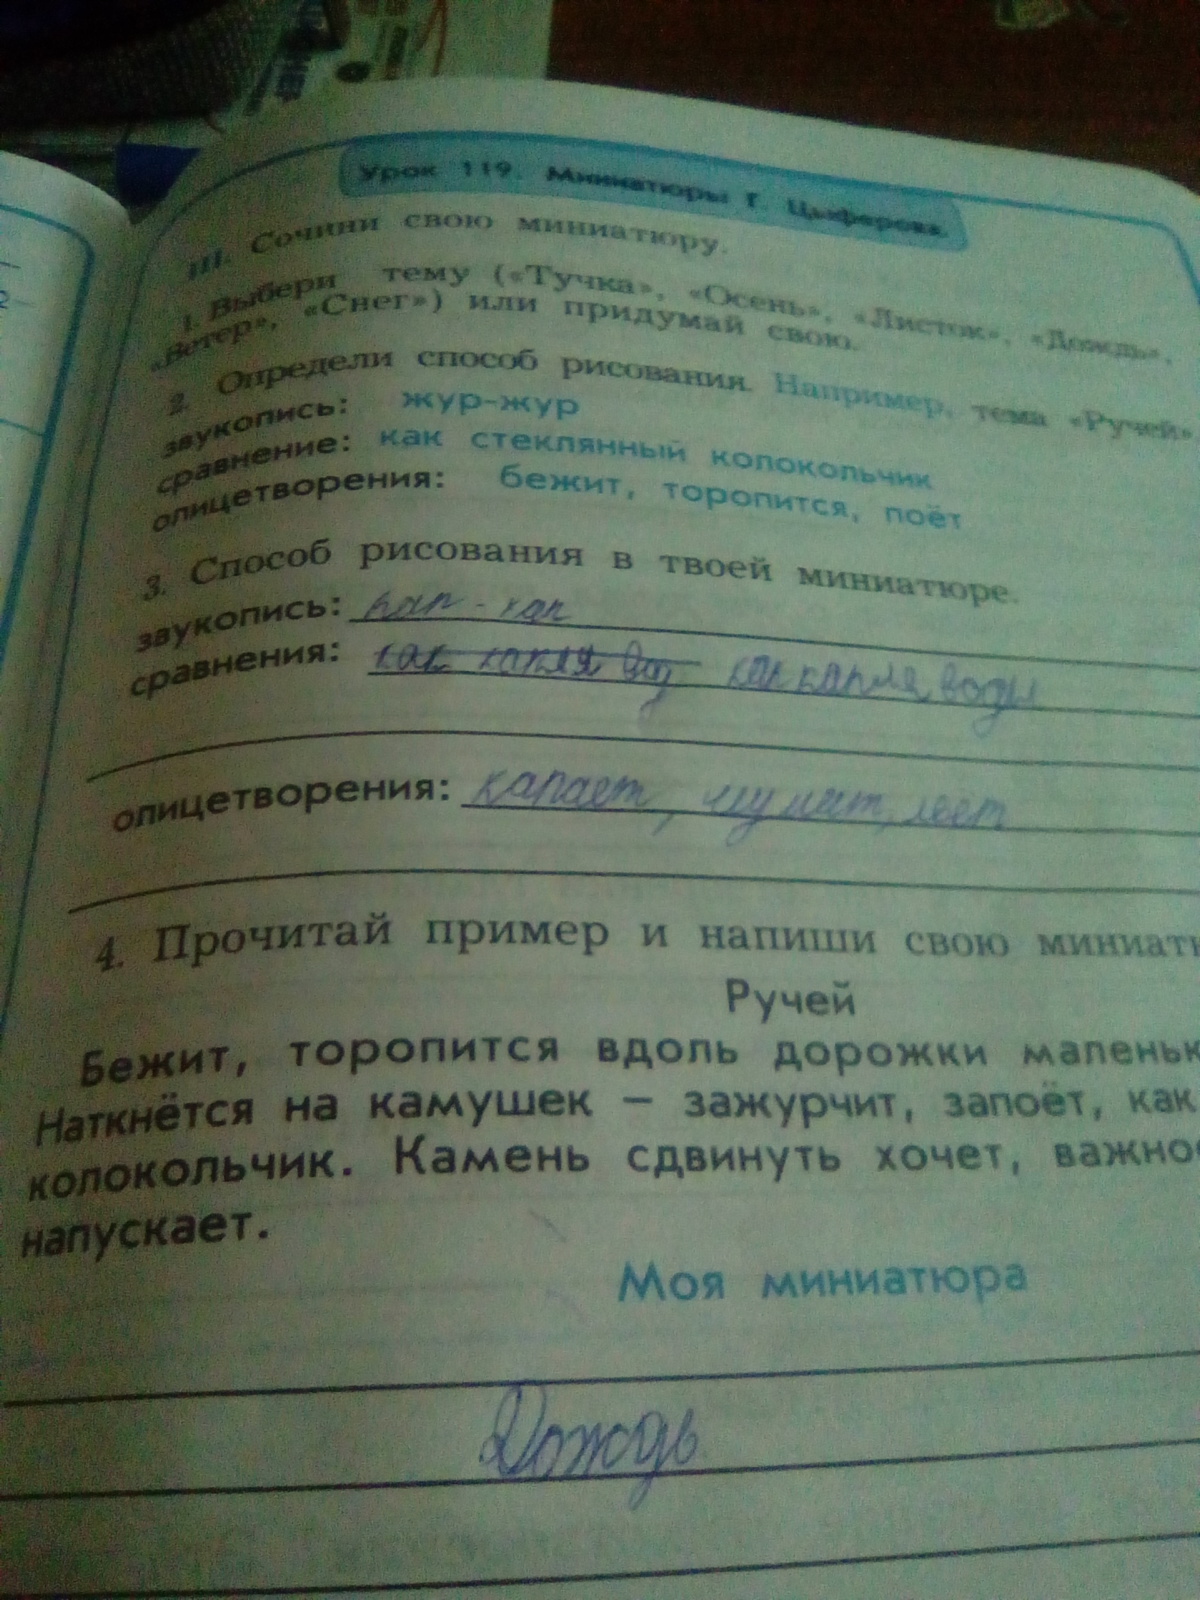 Урок 119. Миниатюры Г. Цыферова
III. Сочини свою миниатюру.
1. Выбери тему («Тучка», «Осень», «Листок», «Дождь»,
«Ветер», «Снег») или придумай свою.
2. Определи способ рисования. Например, тема «Ручей»
звукопись: жур-жур
сравнение: как стеклянный колокольчик
олицетворения: бежит, торопится, поёт
3. Способ рисования в твоей миниатюре.
звукопись: кап-кап
сравнения: как капля вод как капля воды
олицетворения: капает, шумит, льёт
4. Прочитай пример и напиши свою миниат
Ручей
Бежит, торопится вдоль дорожки маленьк
Наткнётся на камушек – зажурчит, запоёт, как
колокольчик. Камень сдвинуть хочет, важно
напускает.
Моя миниатюра
Дождь